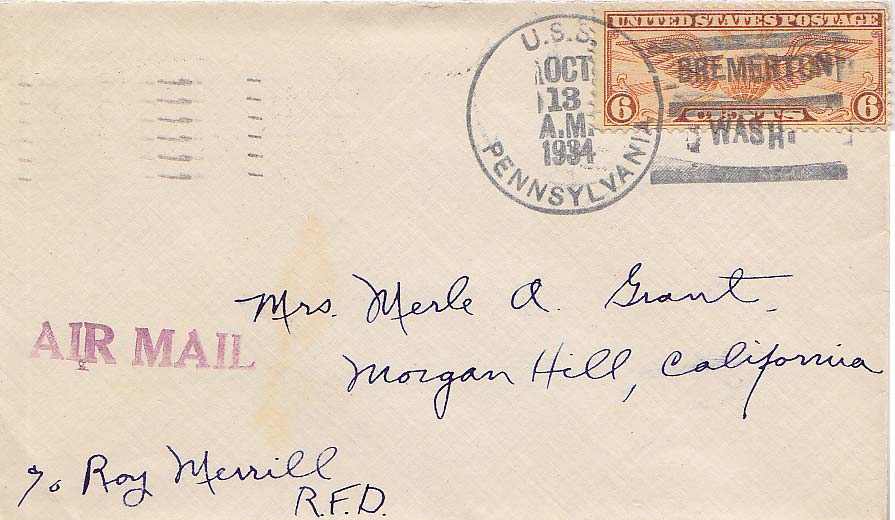 UNITED STATES POSTAGE
6 CENTS 6
U.S.S. PENNSYLVANIA
OCT
13
A.M.
1934
BREMERTON
WASH.
Mrs. Merle A. Grant
Morgan Hill, California
AIR MAIL
℅ Roy Merrill
R.F.D.